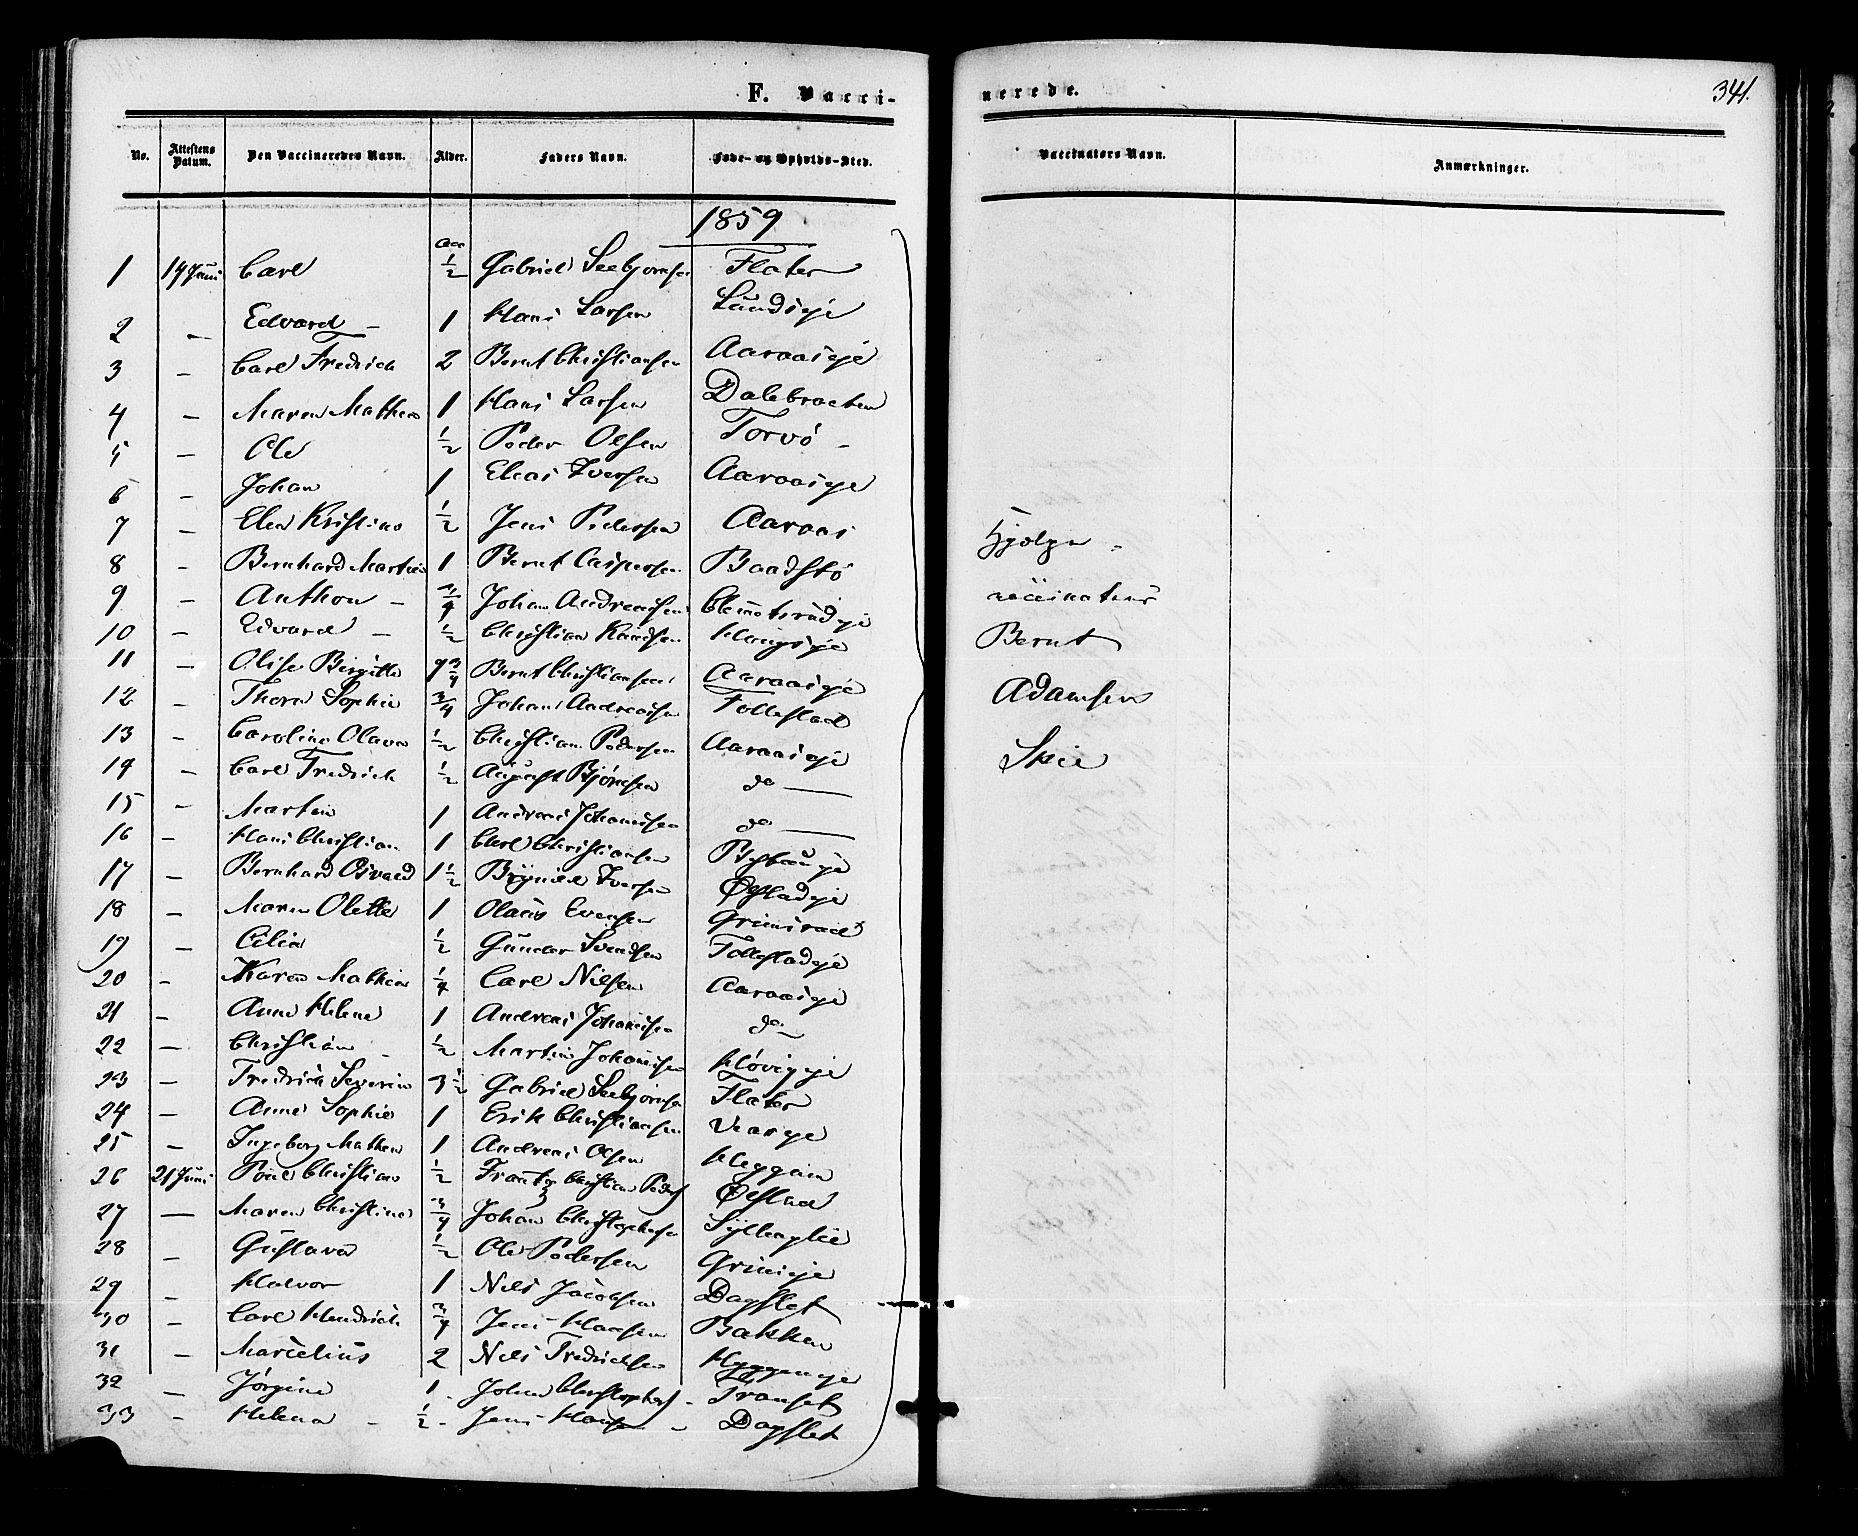 F. Vacci-
nerede.
341.
No. Attestens Datum. Den Vaccineredes Navn. Alder. Faders Navn. Føde- og Opholds-Sted.
Vaccinators Navn. Anmærkninger.
1859
Aar
1 14 Juni Carl 1/2 Gabriel Seebjørnsen Flater
2 — Edvard — 1 Hans Larsen Lundseje
3 — Carl Fredrich 2 Bernt Christiansen Aaraaseje
4 — Maren Mathea 1 Hans Larsen Dalebraaten
5 — Ole 1/2 Peder Olsen Torvø —
6 — Johan 1 Elias Iversen Aaraaseje
7 — Elen Kristine 1/2 Jens Pedersen Aaraas
8 — Bernhard Martin 1 Bernt Caspersen Baadstø
9 — Anthon — 3/4 Johan Andreasen Clemetsrudeje
10 — Edvard — 1/2 Christian Knudsen Haugseje
11 — Olise Birgitte 9 3/4 Bernt Christiansen Aaraaseje
12 — Thora Sophie 3/4 Johan Andreasen Follestad
13 — Caroline Olava 1/2 Christian Pedersen Aaraaseje
14 — Carl Fredrich 1/2 August Bjørnsen do —
15 — Martin 1 Andreas Johannisen do —
16 — Hans Christian 1 Carl Christiansen
17 — Bernhard Osvald 1 1/2 Brynild Iversen Øvstadeje
18 — Maren Olette 1 Olaus Evensen Grimsrud
19 — Cilia 1/2 Gunder Svendsen Follestadeje
20 — Karen Mathea 1/4 Carl Nielsen Aaraaseje
21 — Anne Helene 1 Andreas Johannisen do —
22 — Christian 1/2 Martin Johannisen Høvigeje
23 — Fredrich Severin 3 1/2 Gabriel Seebjørnsen Flater
24 — Anne Sophie 1 Erik Christiansen
25 — Ingeborg Mathea 1 Andreas Olsen Heggum
26 21 Juni Poul Christian 1/2 Frantz Christian Peders Øvstad
27 — Maren Christine 3/4 Johan Christophersen Syllinglie
28 — Gustava 1/2 Ole Pedersen Grimseje
29 — Halvor 1 Nils Jacobsen Dagslet
30 — Carl Hendrich 3/4 Jens Hansen Bakken
31 — Marcelius 2 Nils Fredrichsen Hyggeneje
32 — Jørgine 1 Johan Christophers — Transet
33 — Helena — 1/2 Jens Hansen — Dagslet
Hjælpe-
vaccinateur
Bernt
Adamsen
Skie